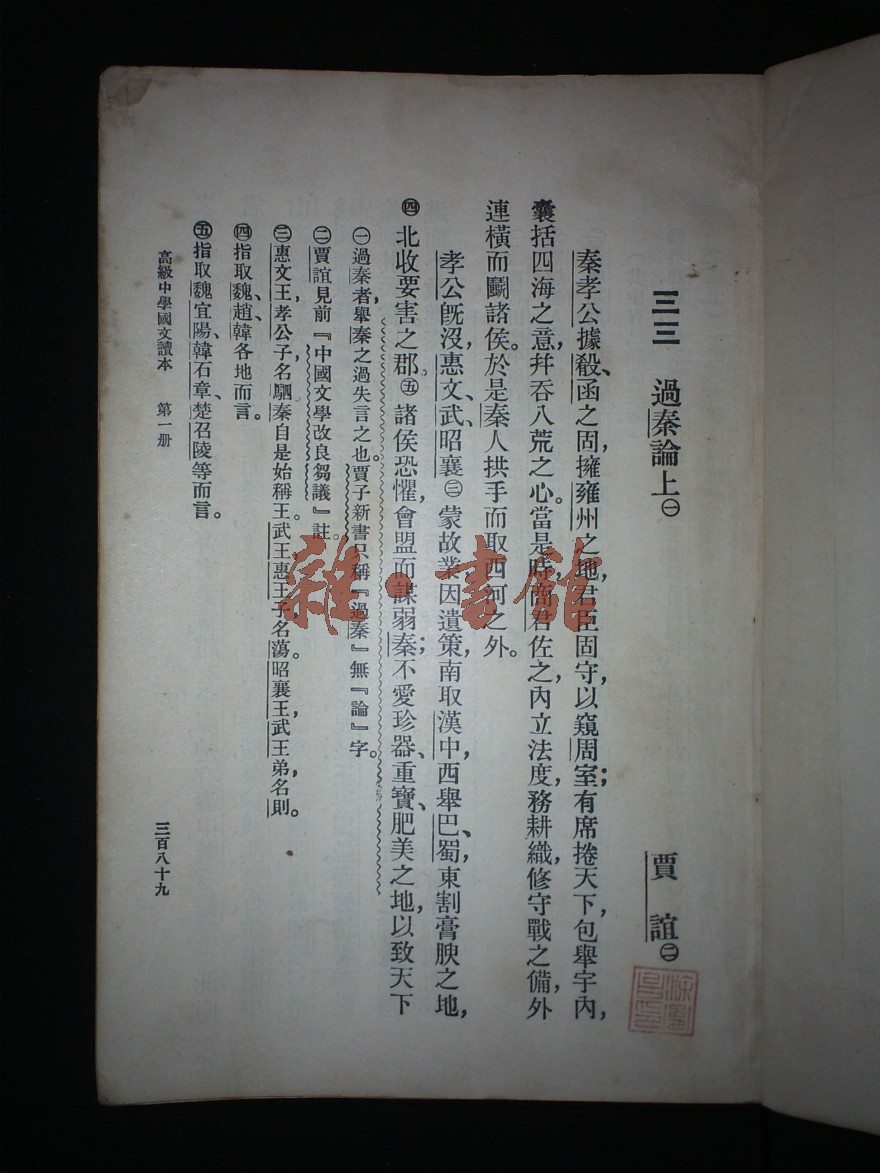 三三　過秦論上㊀
賈　誼㊁
秦孝公據殽、函之固，擁雍州之地，君臣固守，以窺周室；有席捲天下，包舉宇內，
囊括四海之意，幷吞八荒之心。當是時，商君佐之，內立法度，務耕織，修守戰之備，外
連橫而鬭諸侯。於是秦人拱手而取西河之外。
孝公旣沒，惠文、武、昭襄㊂蒙故業，因遺策，南取漢中，西舉巴、蜀，東割膏腴之地，
㊃北收要害之郡。㊄諸侯恐懼，會盟而謀弱秦；不愛珍器、重寶、肥美之地，以致天下
㊀過秦者，舉秦之過失言之也。賈子新書只稱『過秦』無『論』字。
㊁賈誼見前『中國文學改良芻議』註。
㊂惠文王，孝公子，名駟，秦自是始稱王。武王，惠王子，名蕩。昭襄王，武王弟，名則。
㊃指取魏、趙、韓各地而言。
㊄指取魏宜陽、韓石章、楚召陵等而言。
高級中學國文讀本　第一册
三百八十九
雜·書館